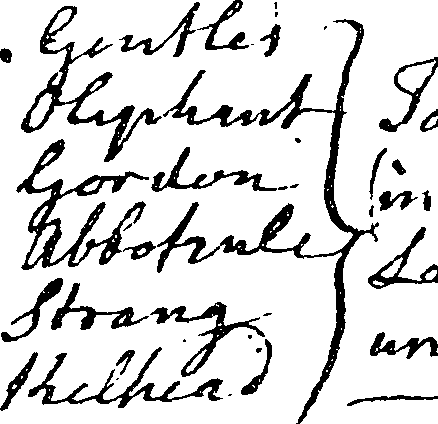 Gentles
Oliphant
Gordon
Abbotrule
Strang
Kelhead
in
un